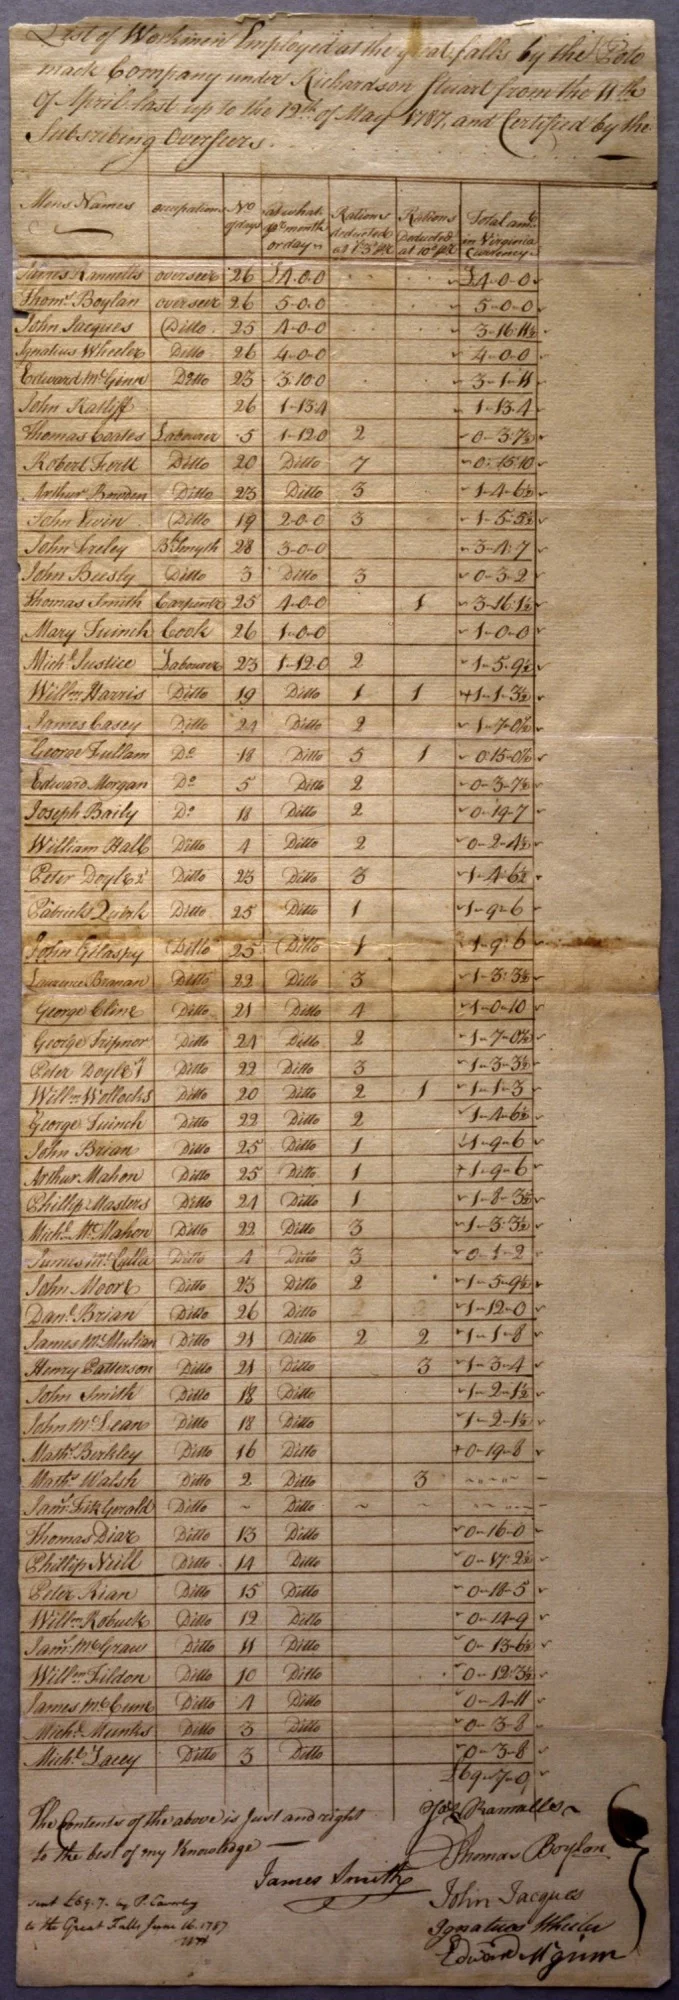 List of Workmen Employed at the great falls by the Poto
mack Company under Richardson Stuart from the 11th
of April last up to the 12th of May 1787, and Certified by the
Subscribing Overseers.
Mens Names occupations No of days at what pr month or day Rations deducted at 1/3 pr Rations Deducted at 10d pr Total amt in Virginia Currency
James Rannells overseer 26 £4-0-0 £4-0-0
Thoms Boylan overseer 26 5-0-0 5-0-0
John Jacques Ditto 25 4-0-0 3-16-11½
Ignatius Wheeler Ditto 26 4-0-0 4-0-0
Edward McGinn Ditto 23 3-10-0 3-1-11
John Ratliff 26 1-13-4 1-13-4
Thomas Coates Labourer 5 1-12-0 2 0-3-7½
Robert Ditto 20 Ditto 7 0-15-10
Arthur Bowden Ditto 23 Ditto 3 1-4-6½
John Levin Ditto 19 2-0-0 3 1-5-5½
John Bk Smyth 28 3-0-0 3-4-7
John Beesly Ditto 3 Ditto 3 0-3-2
Thomas Smith Carpenter 25 4-0-0 1 3-16-1½
Mary Cook 26 1-0-0 1-0-0
Michl Justice Labourer 23 1-12-0 2 1-5-9½
Willm Harris Ditto 19 Ditto 1 1 1-1-3½
James Casey Ditto 24 Ditto 2 1-7-0½
George Fullam Do 18 Ditto 5 1 0-15-0½
Edward Morgan Do 5 Ditto 2 0-3-7½
Joseph Baily Do 18 Ditto 2 0-19-7
William Hall Ditto 4 Ditto 2 0-2-4½
Peter Doyle Ditto 23 Ditto 3 1-4-6½
Patrick Quirk Ditto 25 Ditto 1 1-9-6
John Gilaspy Ditto 25 Ditto 1 1-9-6
Laurence Branan Ditto 22 Ditto 3 1-3-3½
George Cline Ditto 21 Ditto 4 1-0-10
George Ditto 24 Ditto 2 1-7-0½
Peter Doyle Ditto 22 Ditto 3 1-3-3½
Willm Wollocks Ditto 20 Ditto 2 1 1-1-3
George Ditto 22 Ditto 2 1-4-6½
John Brian Ditto 25 Ditto 1 1-9-6
Arthur Mahon Ditto 25 Ditto 1 1-9-6
Phillip Masters Ditto 24 Ditto 1 1-8-3½
Michl McMahon Ditto 22 Ditto 3 1-3-3½
James Ditto 4 Ditto 3 0-1-2
John Moore Ditto 23 Ditto 2 1-5-9½
Danl Brian Ditto 26 Ditto 1-12-0
James McMulian Ditto 21 Ditto 2 2 1-1-8
Henry Patterson Ditto 21 Ditto 3 1-3-4
John Smith Ditto 18 Ditto 1-2-1½
John McLean Ditto 18 Ditto 1-2-1½
Mathw Berkley Ditto 16 Ditto 0-19-8
Mathw Walsh Ditto 2 Ditto 3
Jams Fitz Gerald Ditto ~ Ditto ~ ~
Thomas Diar Ditto 13 Ditto 0-16-0
Phillip Neill Ditto 14 Ditto 0-17-2½
Peter Rian Ditto 15 Ditto 0-18-5
Willm Robuck Ditto 12 Ditto 0-14-9
Jams McGraw Ditto 11 Ditto 0-13-6½
Willm Fildon Ditto 10 Ditto 0-12-3½
James McCune Ditto 4 Ditto 0-4-11
Michl Munks Ditto 3 Ditto 0-3-8
Michl Lacey Ditto 3 Ditto 0-3-8
£69-7-0
The Contents of the above is Just and right
to the best of my Knowledge
James Smith
Jas Rannalls
Thomas Boylan
John Jacques
Ignatious Wheeler
Edward McGinn
sent £69.7. by P.
to the Great Falls June 16. 1787